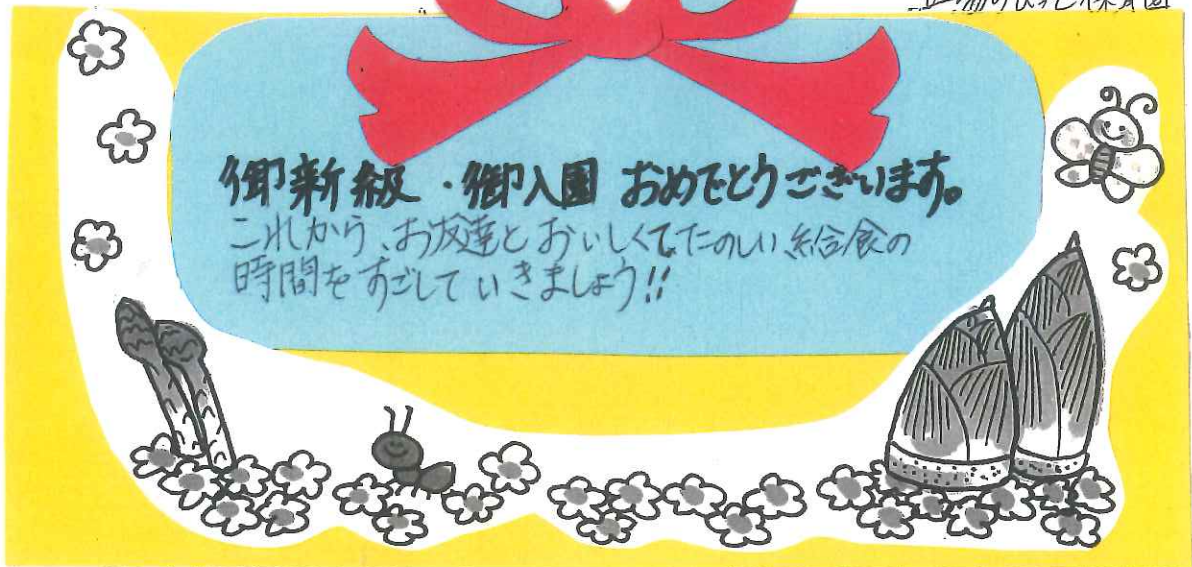 御新級・御入園 おめでとうございます。
これから、お友達と おいしくてたのしい 給食の
時間を すごして いきましょう!!